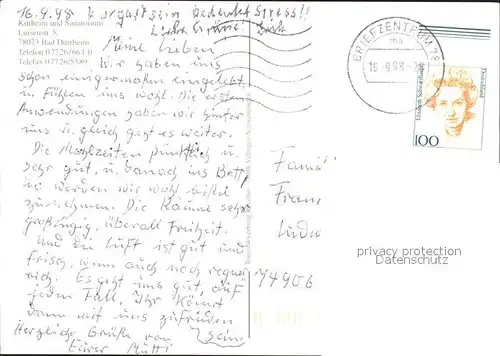 16.9.98 Kurgast sein bedeutet Stress!!
Liebe Grüße
Kurheim und Sanatorium
Luisenstr. 8
78073 Bad Dürrheim
Telefon 07726/661-0
Telefax 07726/5389
Meine Lieben
Wir haben uns
schon einigermaßen eingelebt
u. fühlen uns wohl. Die ersten
Anwendungen haben wir hinter
uns u. gleich geht es weiter.
Die Mahlzeiten pünktlich u.
sehr gut, u. danach ins Bett,
so werden wir wohl
zunehmen. Die Räume sehr
großzügig, überall Freiheit.
Und die Luft ist gut und
frisch, wenn auch noch regne-
risch. Es geht uns gut, auf
jeden Fall, Ihr könnt
dann mit uns zufrieden
sein
Herzliche Grüße von
Eurer Mutti
BRIEFZENTRUM 78
Elisabeth Schwarzhaupt
Deutschland
100
Famil
Fran
Ludw
74906
privacy protection
Datenschutz